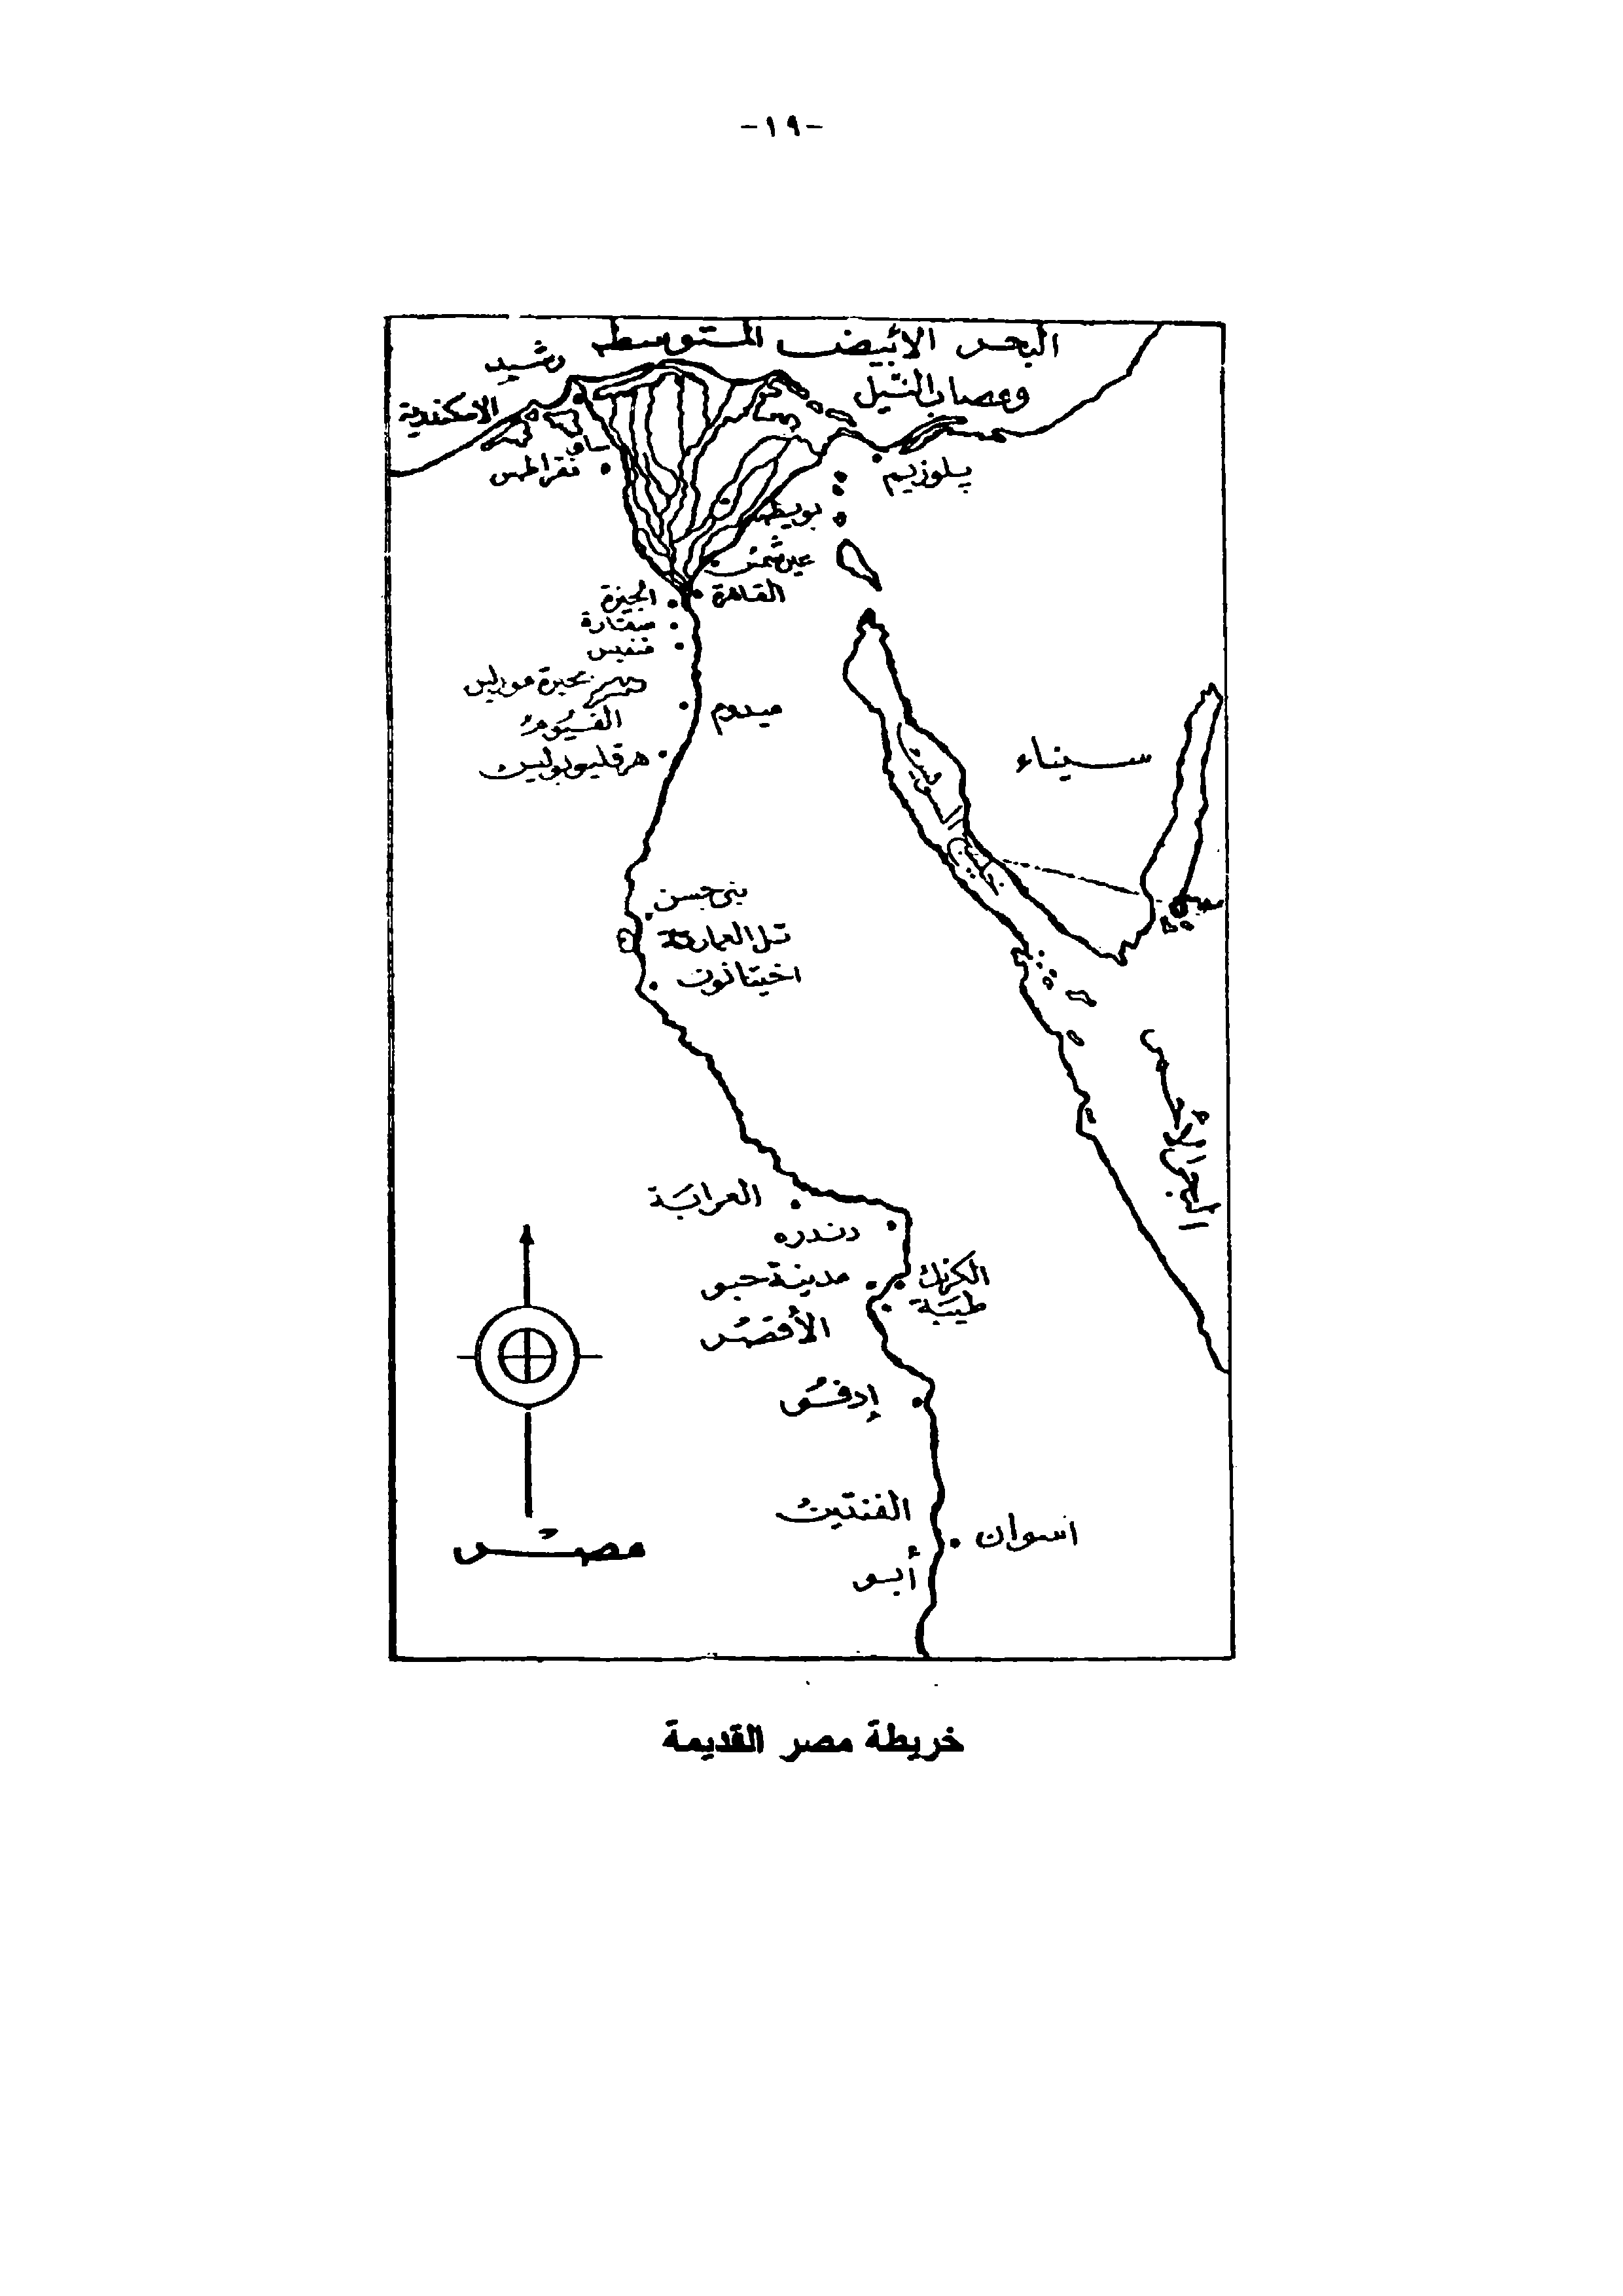 -١٩-
البحر الأبيض المتوسط
رشيد
الاسكندرية
النيل
ساو
نقراطس
پلوزيم
عين شمس
القاهرة
الجيزة
سقارة
منفيس
بحيرة موريس
الفيوم
ميدوم
هرقليوبوليس
سيناء
خليج
بني حسن
تل العمارنة
اخيتاتون
البحر الأحمر
العرابة
دندره
الكرنك
مدينة حبو
طيبة
الأقصر
إدفو
الفنتين
اسوان
أبو
مصر
خريطة مصر القديمة